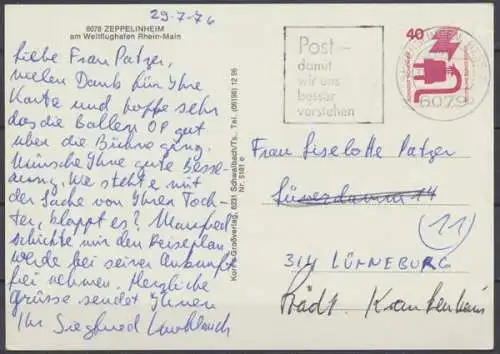 29-7-76
6078 ZEPPELINHEIM
am Weltflughafen Rhein-Main
Liebe Frau Patzer,
vielen Dank für Ihre
Karte und hoffe sehr
das die Ballen OP gut
über die Bühne ging.
Wünsche Ihne gute Besse-
rung. Wie stehts mit
der Sache von Ihren Toch-
ter, klappt es? Manfred
schickte mir den Reiseplan
werde frei seiner Ankunft
frei nehmen. Herzliche
Grüsse sendet Ihnen
Ihr Siegfried
Korr's Großverlag, 6231 Schwalbach/Ts. Tel. (06196) 12 95
Nr. 5161 e
Post –
damit
wir uns
besser
verstehen
40
6079
Frau Liselotte Patzer
14
11
314 LÜNEBURG
Städt. Krankenhaus